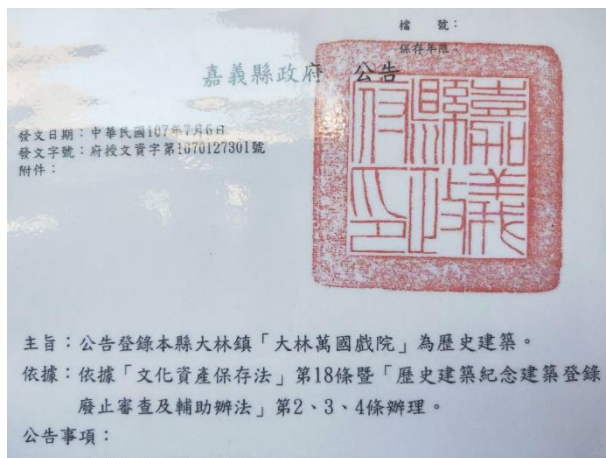 檔　　號：
保存年限：
嘉義縣政府　公告
發文日期：中華民國107年7月6日
發文字號：府授文資字第1070127301號
附件：
嘉義縣政府印
主旨：公告登錄本縣大林鎮「大林萬國戲院」為歷史建築。
依據：依據「文化資產保存法」第18條暨「歷史建築紀念建築登錄
廢止審查及輔助辦法」第2、3、4條辦理。
公告事項：